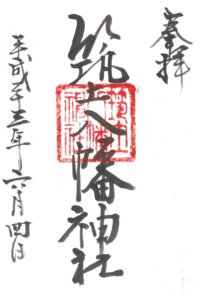 奉拝
筑土八幡神社
平成二十三年六月四日